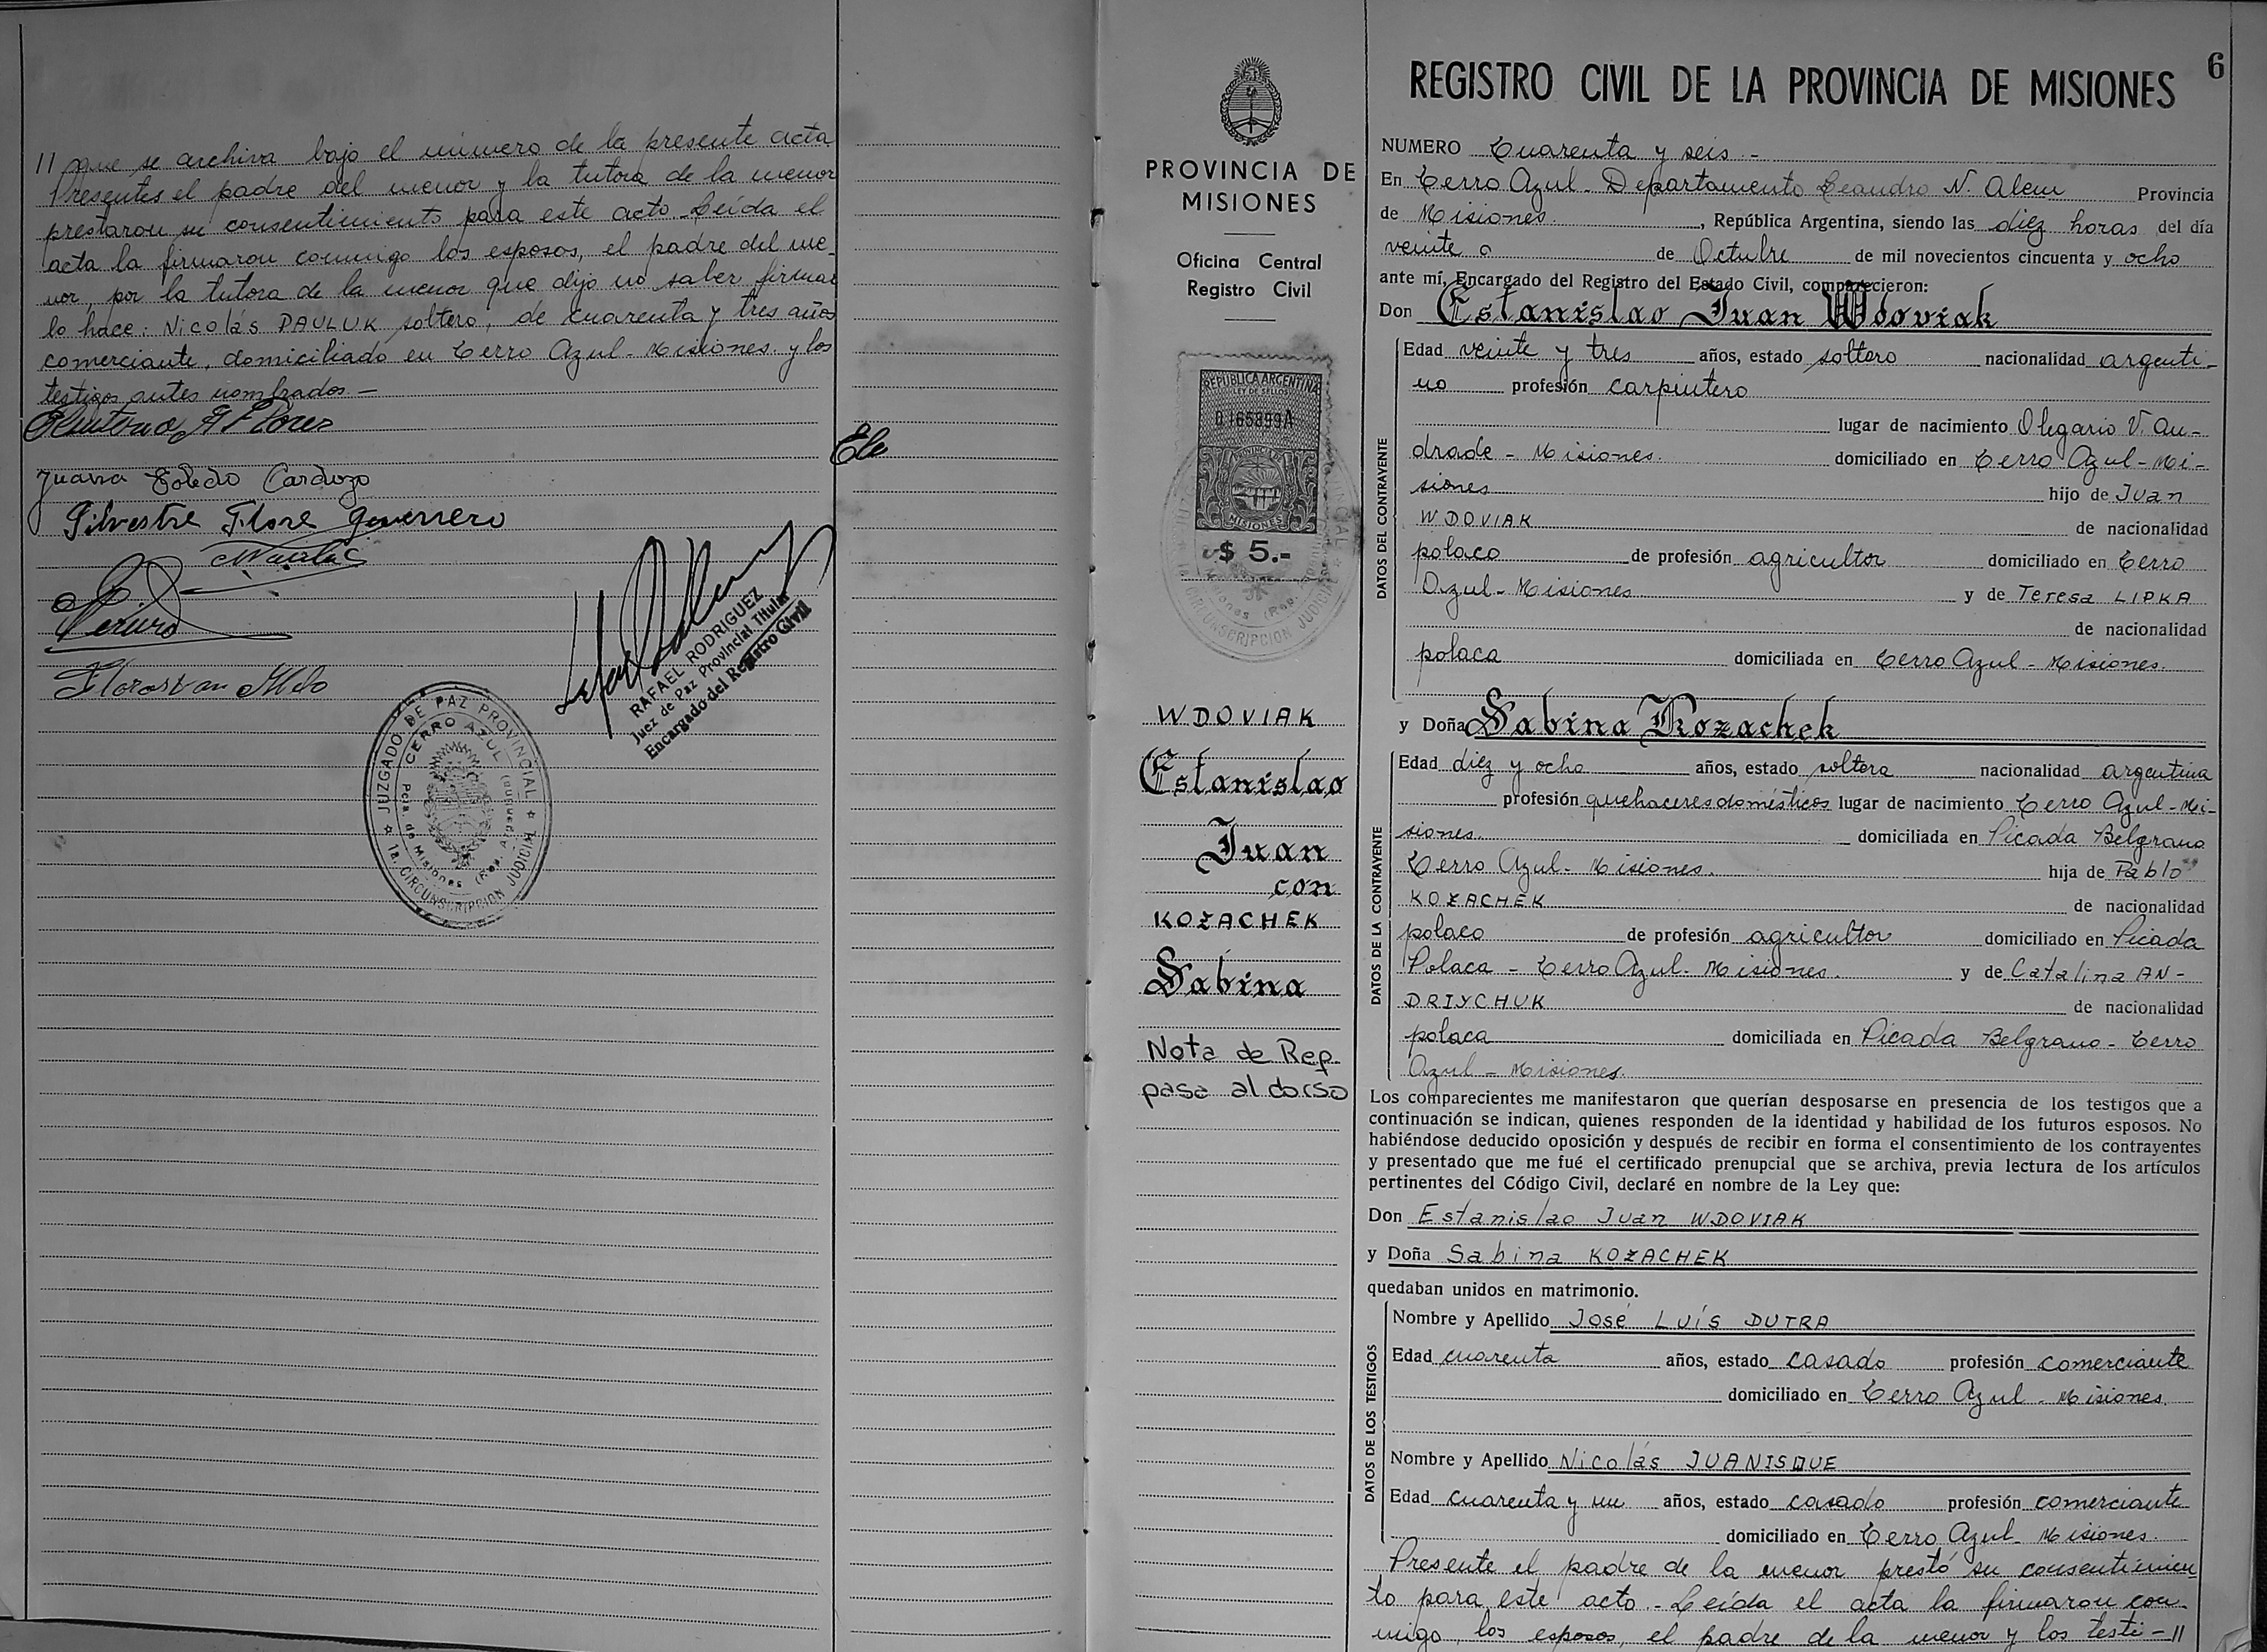 11 que se archiva bajo el número de la presente acta
Presentes el padre del menor y la tutora de la menor
prestaron su consentimiento para este acto. Leída el
acta la firmaron conmigo los esposos, el padre del me-
nor, por la tutora de la menor que dijo no saber firmar
lo hace: Nicolás PAULUK soltero, de cuarenta y tres años
comerciante, domiciliado en Cerro Azul - Misiones y los
testigos antes nombrados -
Juana Toledo Cardozo
Silvestre Flore Guerrero
RAFAEL RODRIGUEZ
Juez de Paz Provincial Titular
Encargado del Registro Civil
JUZGADO DE PAZ PROVINCIAL
CERRO AZUL
Pcia. de Misiones (Rep. Argentina)
1a. CIRCUNSCRIPCION JUDICIAL
PROVINCIA DE
MISIONES
Oficina Central
Registro Civil
REPUBLICA ARGENTINA
LEY DE SELLOS
0165899A
PROVINCIA DE
MISIONES
$ 5.-
1a. CIRCUNSCRIPCION JUDICIAL
WDOVIAK
Estanislao
Juan
con
KOZACHEK
Sabina
Nota de Ref.
pasa al dorso
6
REGISTRO CIVIL DE LA PROVINCIA DE MISIONES
NUMERO Cuarenta y seis.-
En Cerro Azul - Departamento Leandro N. Alem Provincia
de Misiones, República Argentina, siendo las diez horas del día
veinte o de Octubre de mil novecientos cincuenta y ocho
ante mí, Encargado del Registro del Estado Civil, comparecieron:
Don Estanislao Juan Wdoviak
DATOS DEL CONTRAYENTE
Edad veinte y tres años, estado soltero nacionalidad argenti-
no profesión carpintero
lugar de nacimiento Olegario V. An-
drade - Misiones. domiciliado en Cerro Azul - Mi-
siones hijo de Juan
WDOVIAK de nacionalidad
polaco de profesión agricultor domiciliado en Cerro
Azul - Misiones y de Teresa LIPKA
de nacionalidad
polaca domiciliada en Cerro Azul - Misiones.
y Doña Sabina Kozachek
DATOS DE LA CONTRAYENTE
Edad diez y ocho años, estado soltera nacionalidad argentina
profesión quehaceres domésticos lugar de nacimiento Cerro Azul - Mi-
siones. domiciliada en Picada Belgrano
Cerro Azul - Misiones. hija de Pablo
KOZACHEK de nacionalidad
polaco de profesión agricultor domiciliado en Picada
Polaca - Cerro Azul - Misiones. y de Catalina AN-
DRIYCHUK de nacionalidad
polaca domiciliada en Picada Belgrano - Cerro
Azul - Misiones.
Los comparecientes me manifestaron que querían desposarse en presencia de los testigos que a
continuación se indican, quienes responden de la identidad y habilidad de los futuros esposos. No
habiéndose deducido oposición y después de recibir en forma el consentimiento de los contrayentes
y presentado que me fué el certificado prenupcial que se archiva, previa lectura de los artículos
pertinentes del Código Civil, declaré en nombre de la Ley que:
Don Estanislao Juan WDOVIAK
y Doña Sabina KOZACHEK
quedaban unidos en matrimonio.
DATOS DE LOS TESTIGOS
Nombre y Apellido José Luís DUTRA
Edad cuarenta años, estado casado profesión comerciante
domiciliado en Cerro Azul - Misiones.
Nombre y Apellido Nicolás JUANISQUE
Edad cuarenta y un años, estado casado profesión comerciante
domiciliado en Cerro Azul - Misiones.
Presente el padre de la menor prestó su consentimien-
to para este acto.- Leída el acta la firmaron con-
migo los esposos, el padre de la menor y los testi-11